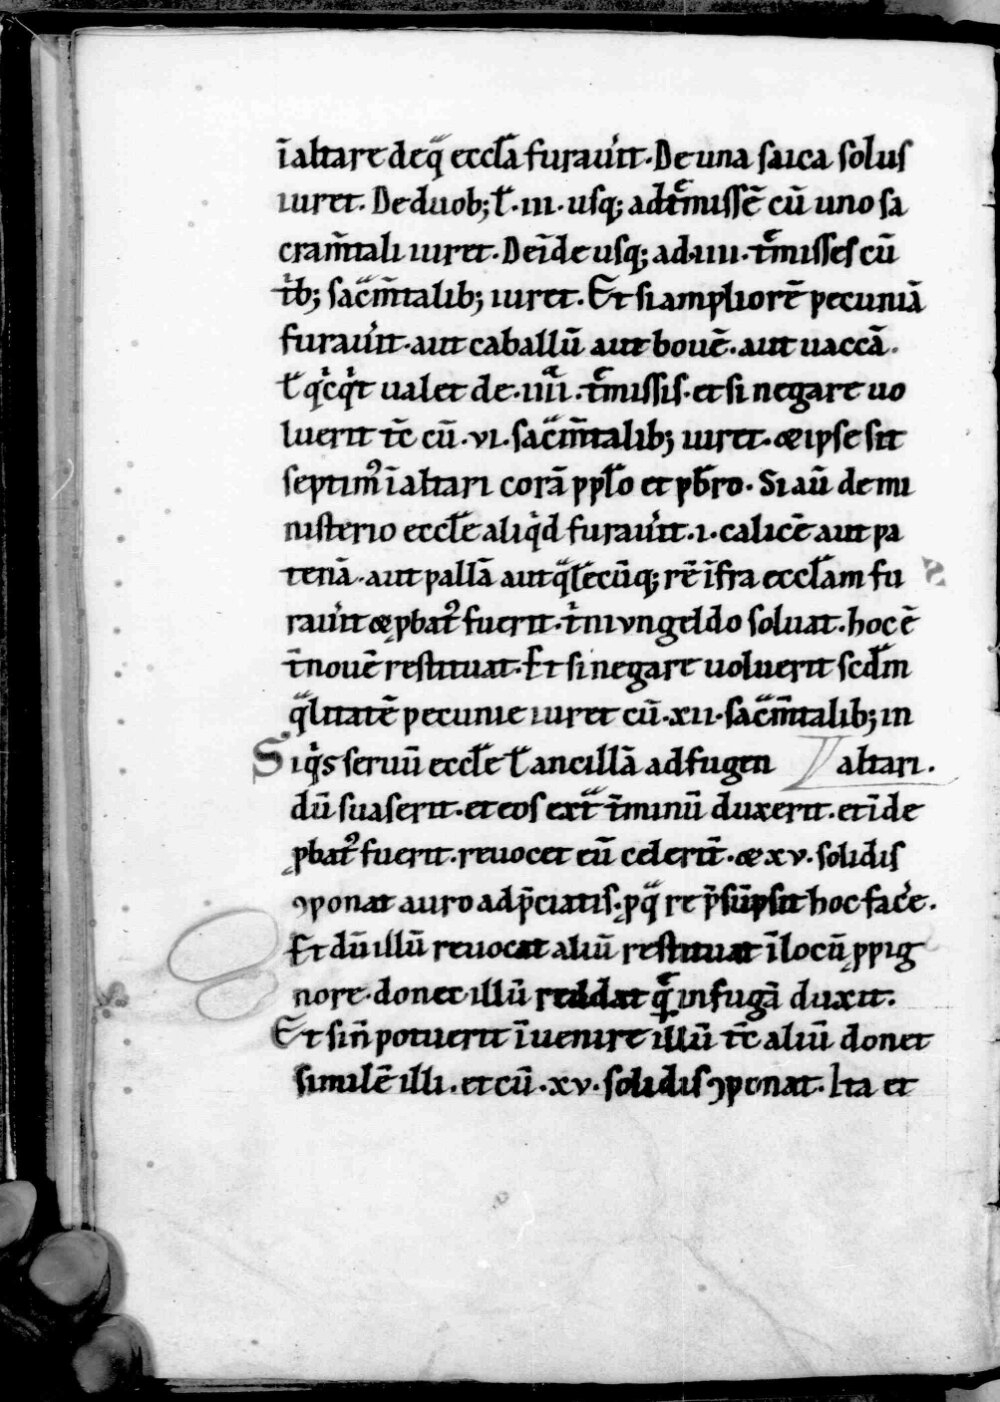 ī altare de q̄ ecctā furau̾it. De una saica solus
iuret. De duob; ł .iii. usq; ad t̄missē cū uno sa
cram̄tali iuret. Deīde usq; ad .iiii. t̄misses cū
tͥb; sac̄m̄talib; iuret. Et si ampliorē pecuniā
furau̾it. aut caballū aut bouē. aut uaccā.
ł qͥcqͥt ualet de .iiii. t̄missis. et si negare uo
luerit tc̄ cū .vi. sac̄m̄talib; iuret. & ipse sit
septim᾽ ī altari corā pplo et pbro. Si aū de mi
nisterio eccłe aliqͥd furau̾it .i. calicē aut pa
tenā. aut pallā aut q̄lecūq; rē īfra eccłam fu
rau̾it & ꝓbat᾽ fuerit. tͥniungeldo soluat. hoc ē
t̄ nouē restituat. Et si negare uoluerit scdm
q̄litatē pecunie iuret cū .xii. sac̄m̄talib; in
altari.
Si qͥs seruū eccłe ł ancillā ad fugien
dū suaserit. et eos ext̄ t̄minū duxerit. et īde
ꝓbat᾽ fuerit. reuocet eū celerit̄. & xv. solidis
ꝯponat auro adp̄ciatis. ꝓ q̄ re p̄sūpsit hoc fac̾e.
Et dū illū reuocat aliū restituat ī locū ꝓ pig
nore. donec illū reddat q̄ in fugā duxit.
Et si n̄ potuerit īuenire illū tc̄ aliū donet
similē illi. et cū .xv. solidis ꝯponat. Ita et